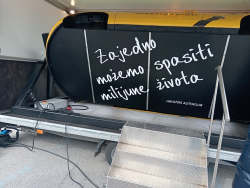 Zajedno
možemo spasiti
milijune života
HRVATSKI AUTOKLUB